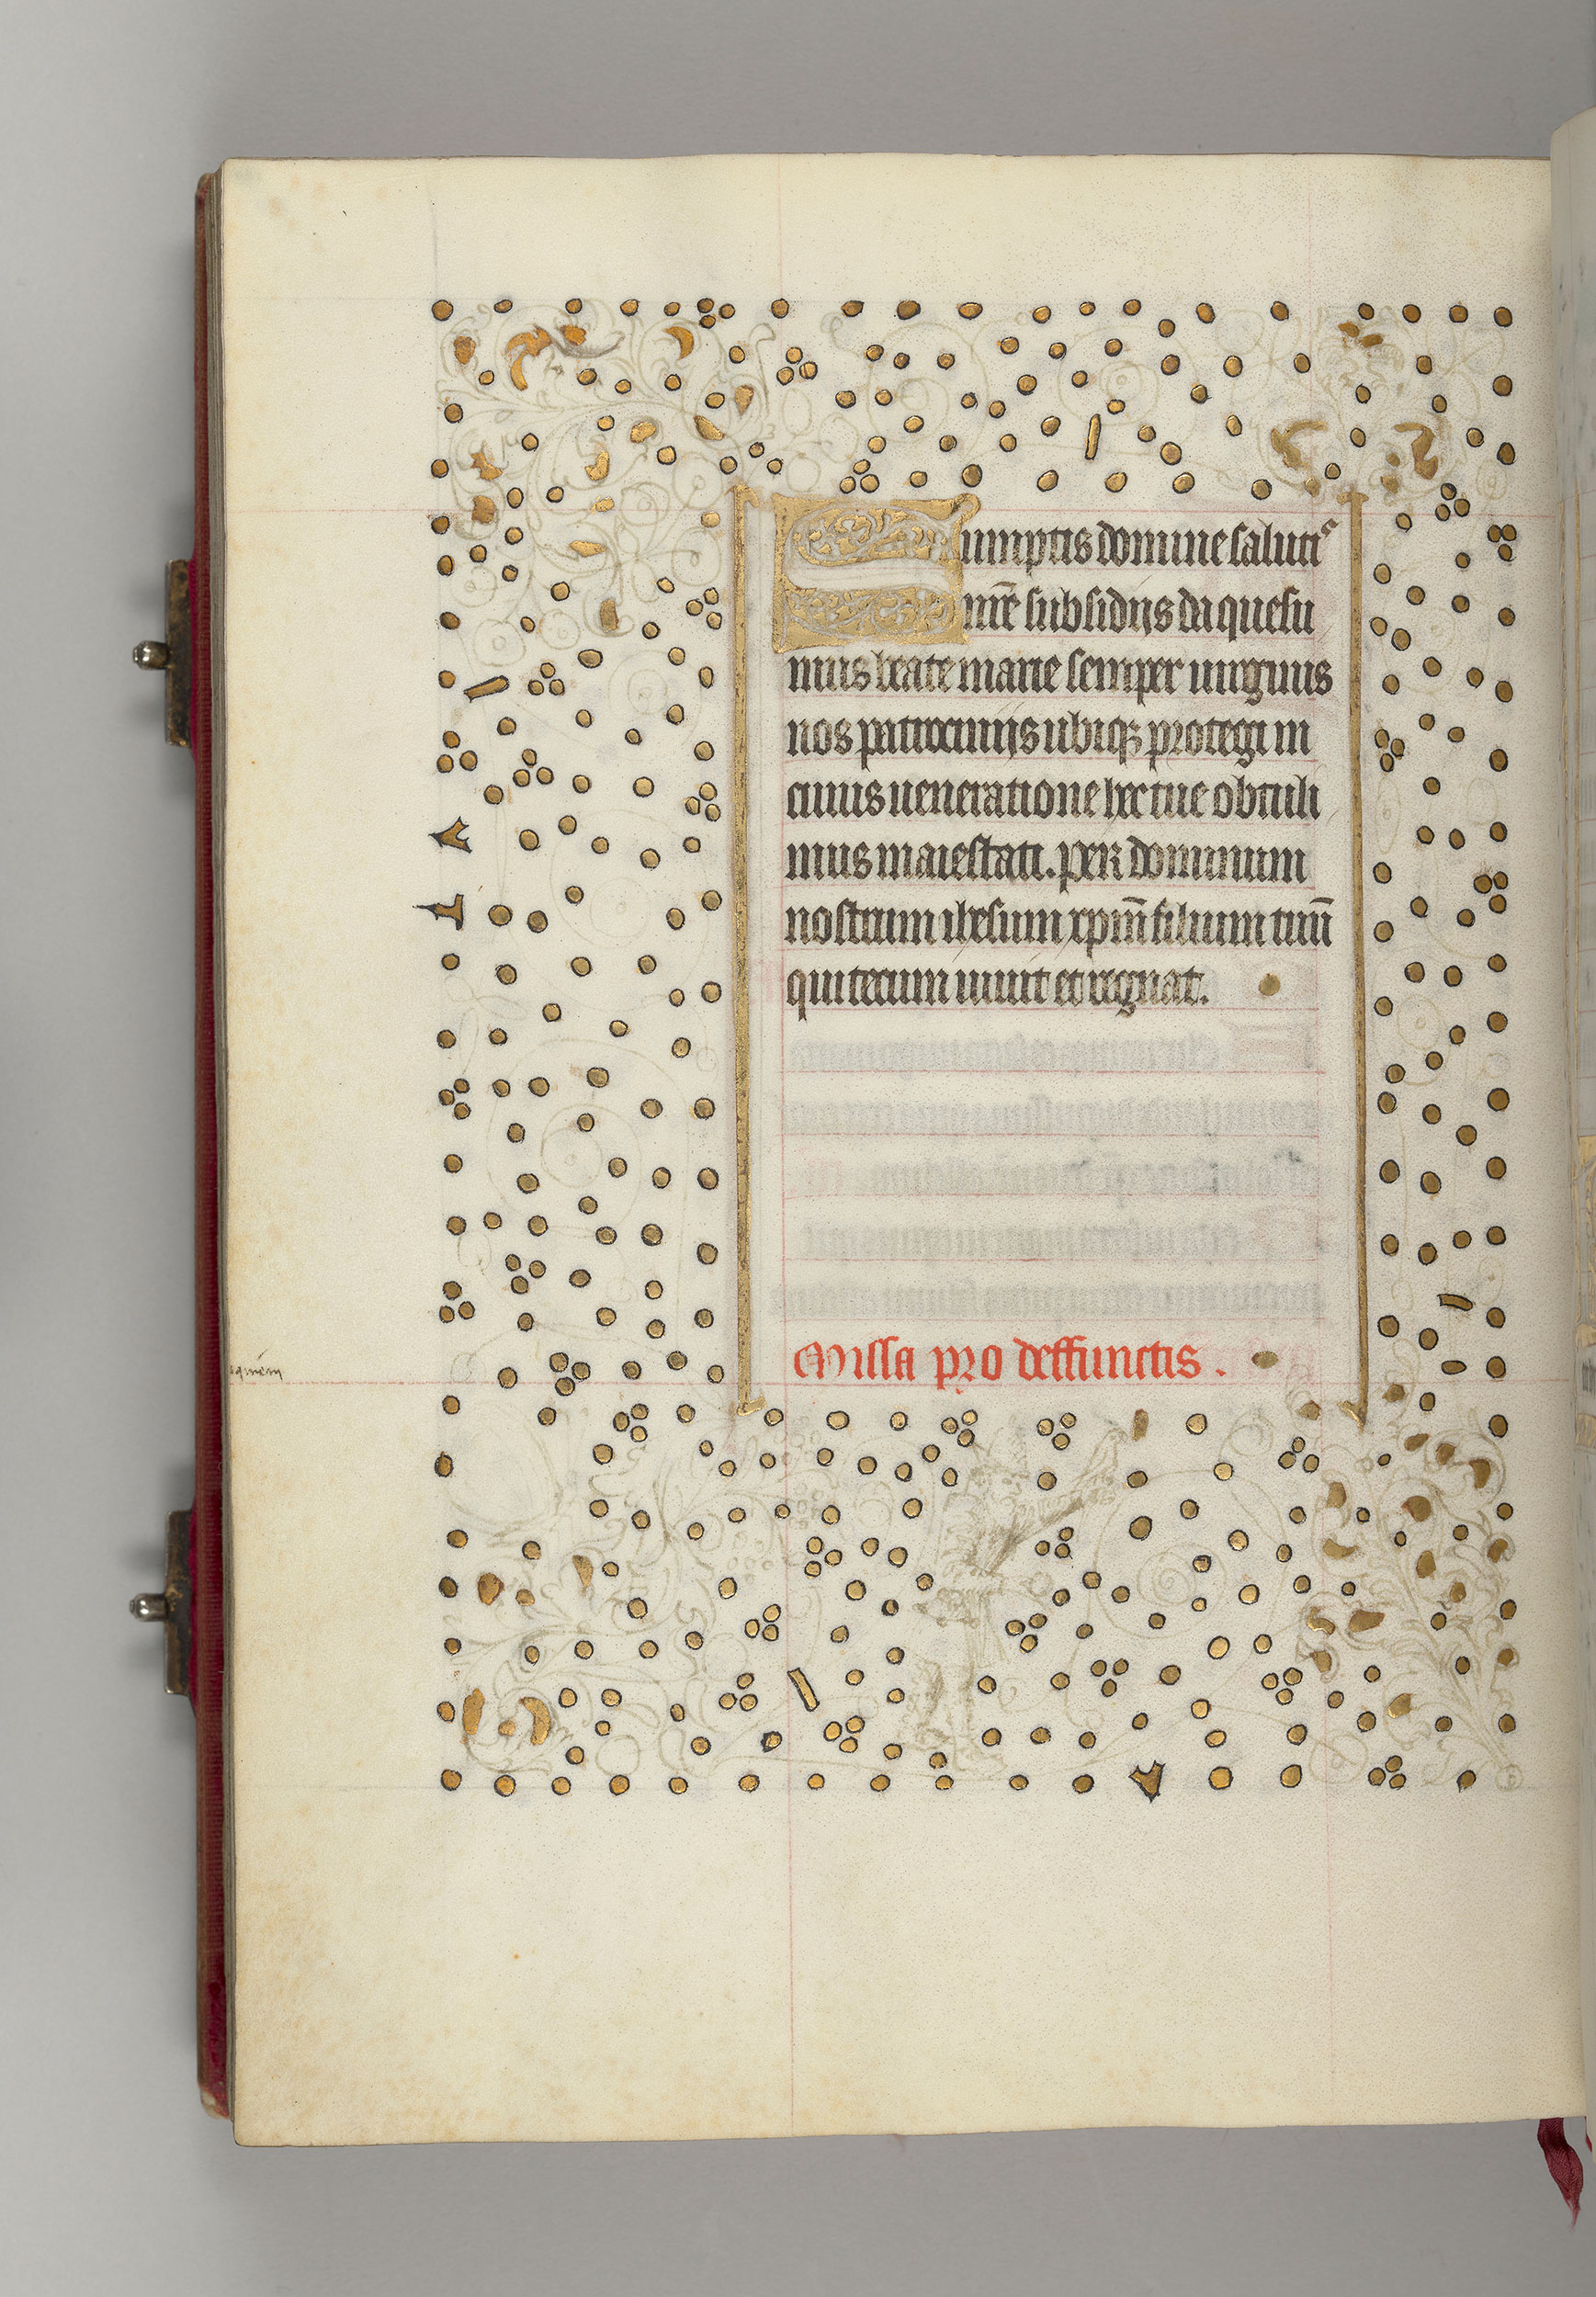 Sumptis domine saluti
nr̄e subsidijs da quesu
mus beate marie semper uirginis
nos patrocinijs ubiqꝫ protegi in
cuius ueneratione hec tue obtuli
mus maiestati. per dominum
nostrum ihesum xpm̄ filium tuū
qui tecum uiuit et regnat.
Missa pro deffunctis.